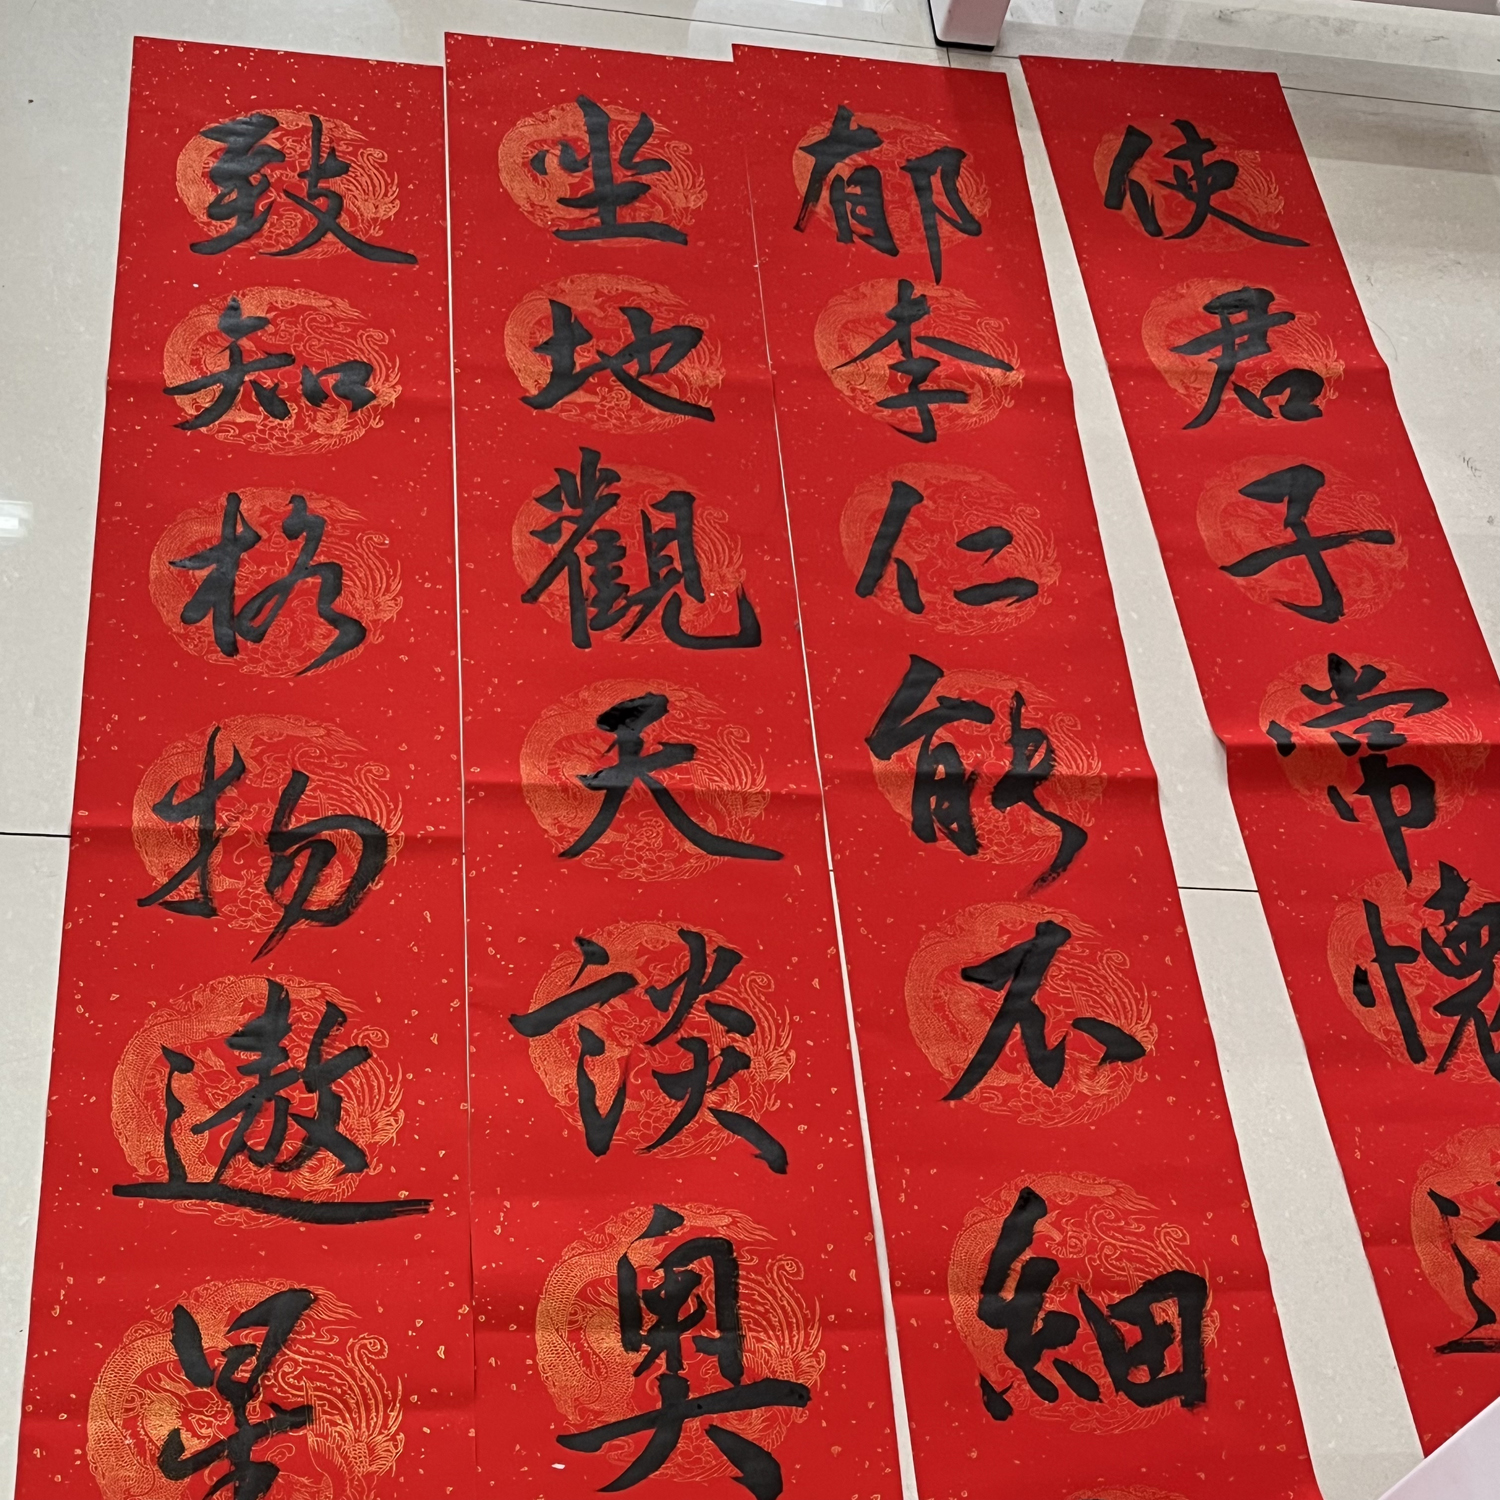 使君子常懷
郁李仁能不細
坐地觀天談奧
致知格物遨星